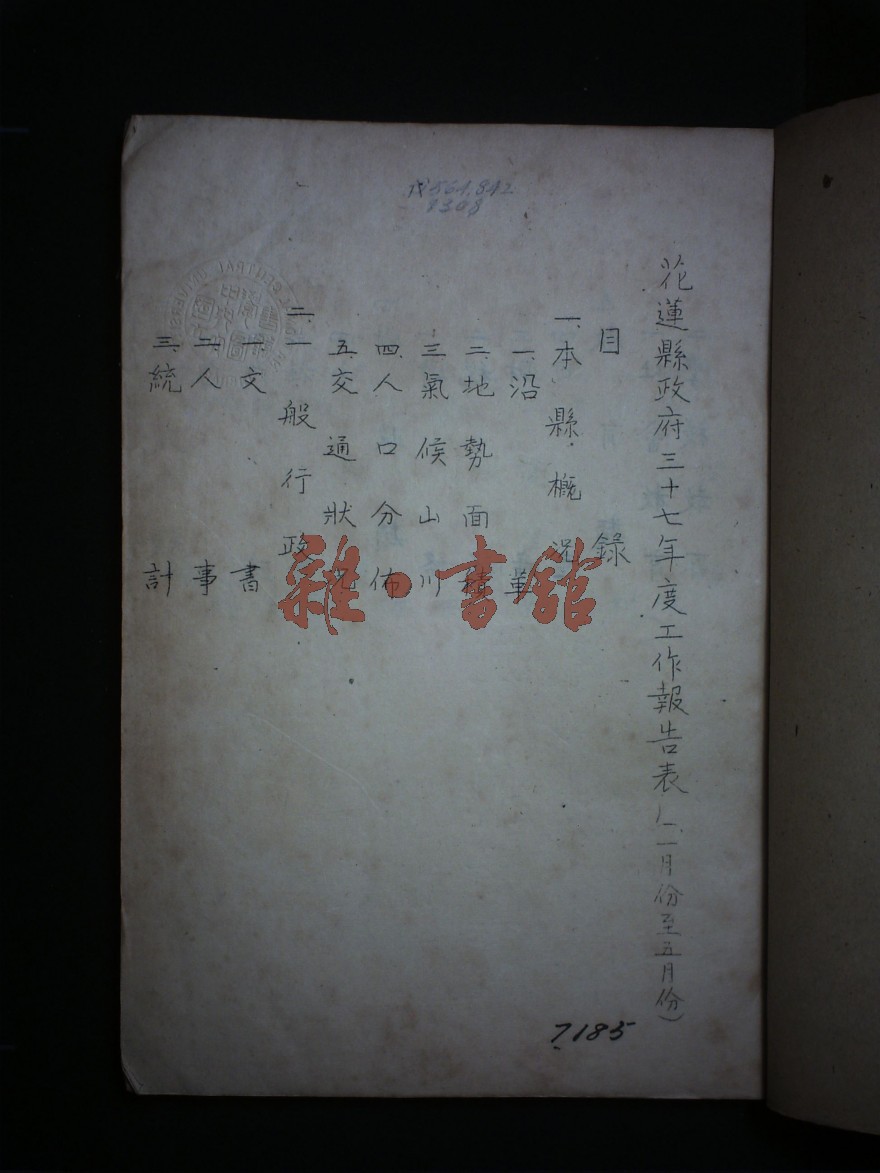 花蓮縣政府三十七年度工作報告表(一月份至五月份)
目錄
一、本縣概況
一、沿革
二、地勢面積
三、氣候山川
四、人口分佈
五、交通狀況
二、一般行政
一、文書
二、人事
三、統計
7185
雜·書館